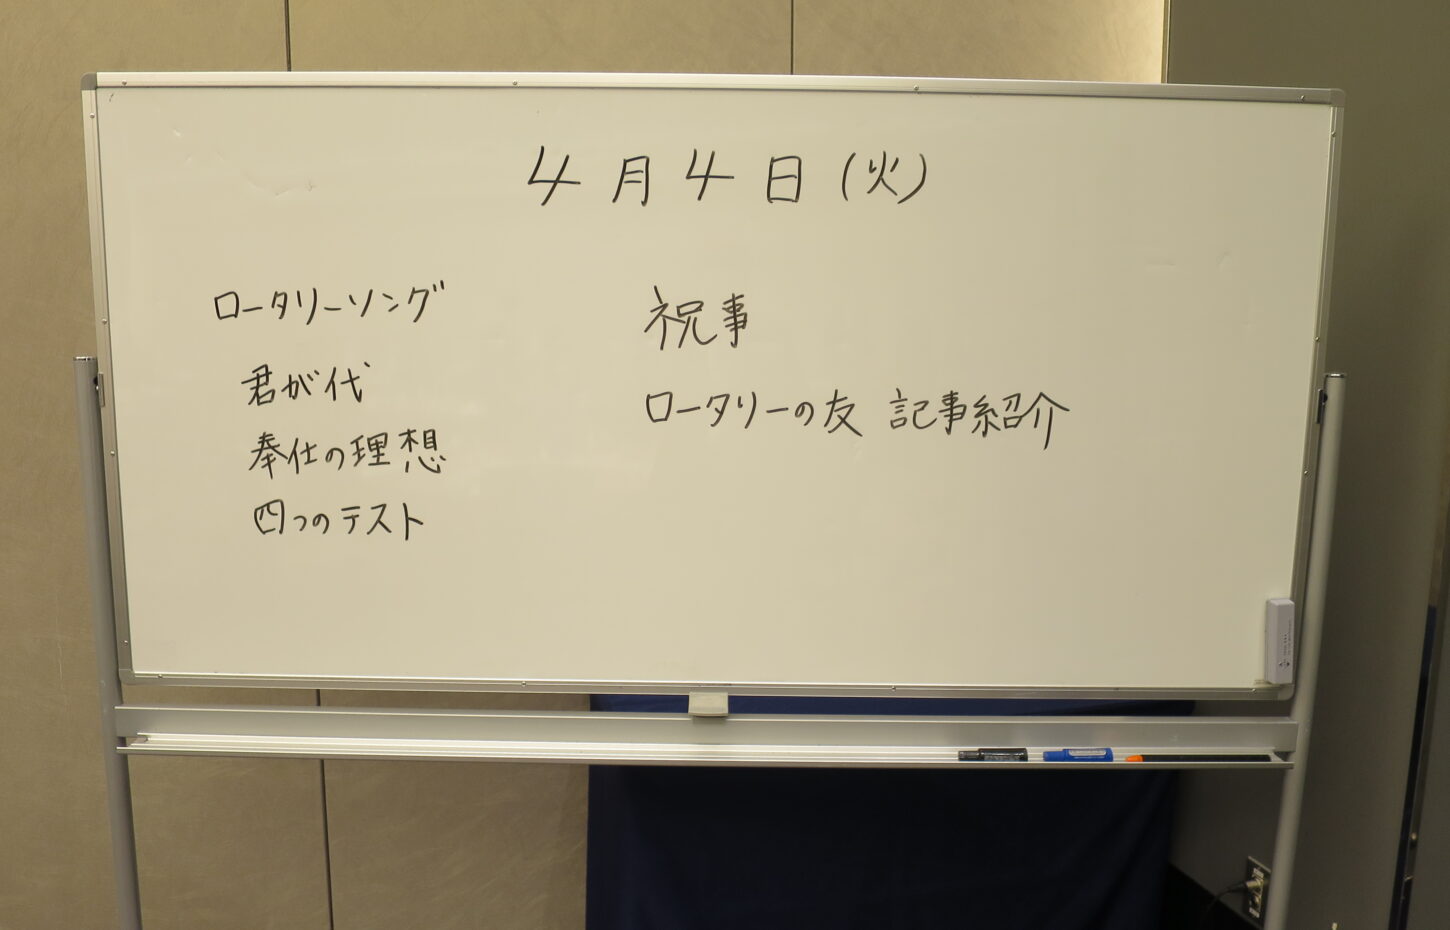 4月4日(火)
ロータリーソング
君が代
奉仕の理想
四つのテスト
祝事
ロータリーの友 記事紹介